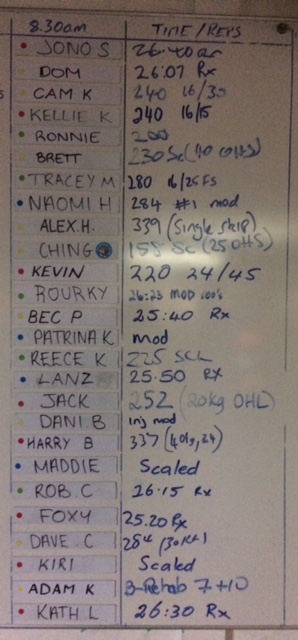 8.30am TIME/REPS
JONO S 26.40
DOM 26:07 Rx
CAM K 240 16/30
KELLIE K 240 16/15
RONNIE 200
BRETT 230 Sc (40 OHS)
TRACEY M 280 16/25 FS
NAOMI H 284 #1 mod
ALEX.H. 339 (Single skip)
CHING 155 Sc (25 OHS)
KEVIN 220 24/45
ROURKY 26:23 MOD 100's
BEC P 25:40 Rx
PATRINA K mod
REECE K 225 SCL
LANZ 25.50 Rx
JACK 252 (20kg OHL)
DANI.B inj mod
HARRY B 337
MADDIE Scaled
ROB.C 26.15 Rx
FOXY 25.20 Rx
DAVE.C
KIRI Scaled
ADAM K 3-Rehab 7+10
KATH L 26:30 Rx